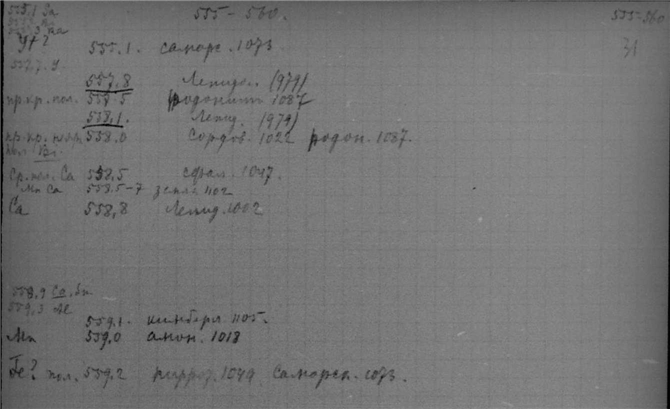 555.1 Sn 555-560. 555-560
31
Y+? 555.1. самарс. 1073
557.8 Лепидол. (979)
пр.кр. пол. 558.5 родонит 1087
558.1. Лепид. (979)
558.0 Сордав. 1022 родон. 1087.
Ср. пол. Ca 558.5 сфал. 1047.
Mn Ca 558.5-7 земля 1102
Ca 558,8 Лепид. 1002
558.9 Ca.
559.3
559.1. кимберл. 1105.
Mn 559.0 анон. 1018
Fe? пол. 559.2 пирроз. 1049 Самарск. 1073.